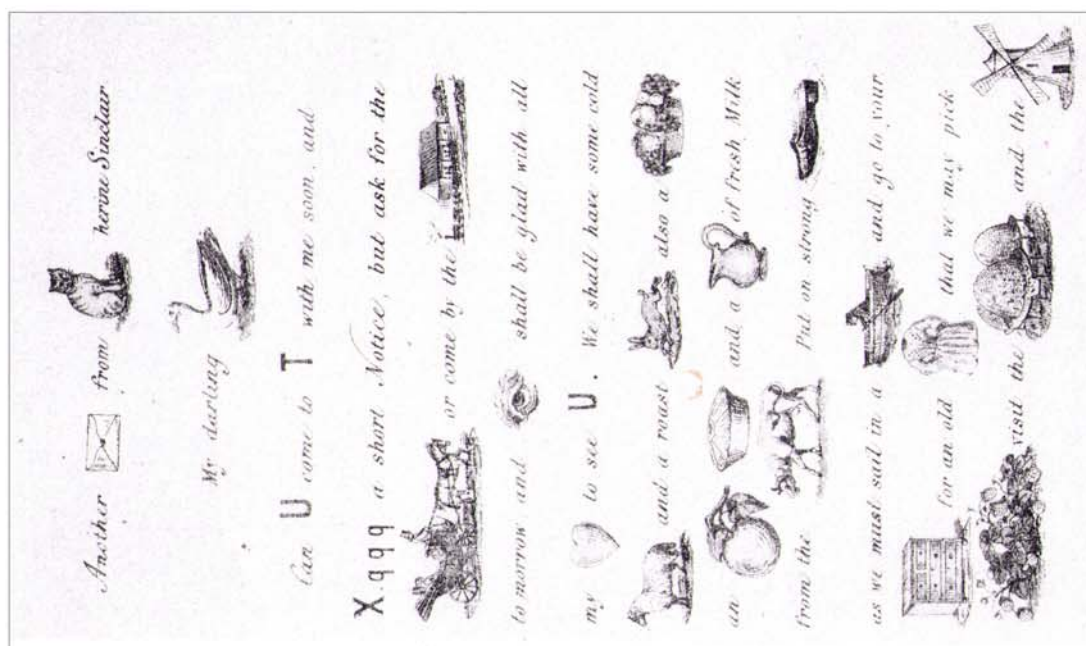 Another from herine Sinclair
My darling
Can U come to T with me soon, and
X.qqq a short Notice, but ask for the
or come by the
to morrow and shall be glad with all
my to see U. We shall have some cold
and a roast also a
an and a of fresh Milk
from the Put on strong
as we must sail in a and go to your
for an old that we may pick
visit the and the